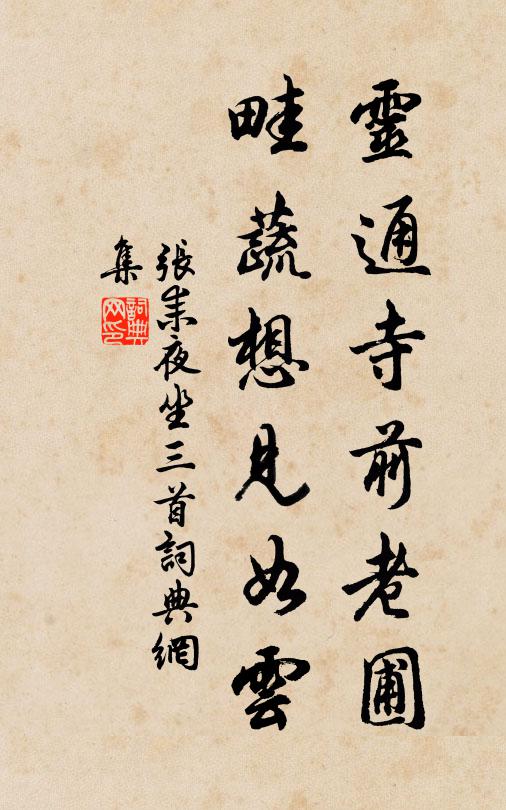 靈通寺前老圃
畦蔬想見如雲
張耒夜坐三首詞典網
集
詞典網印